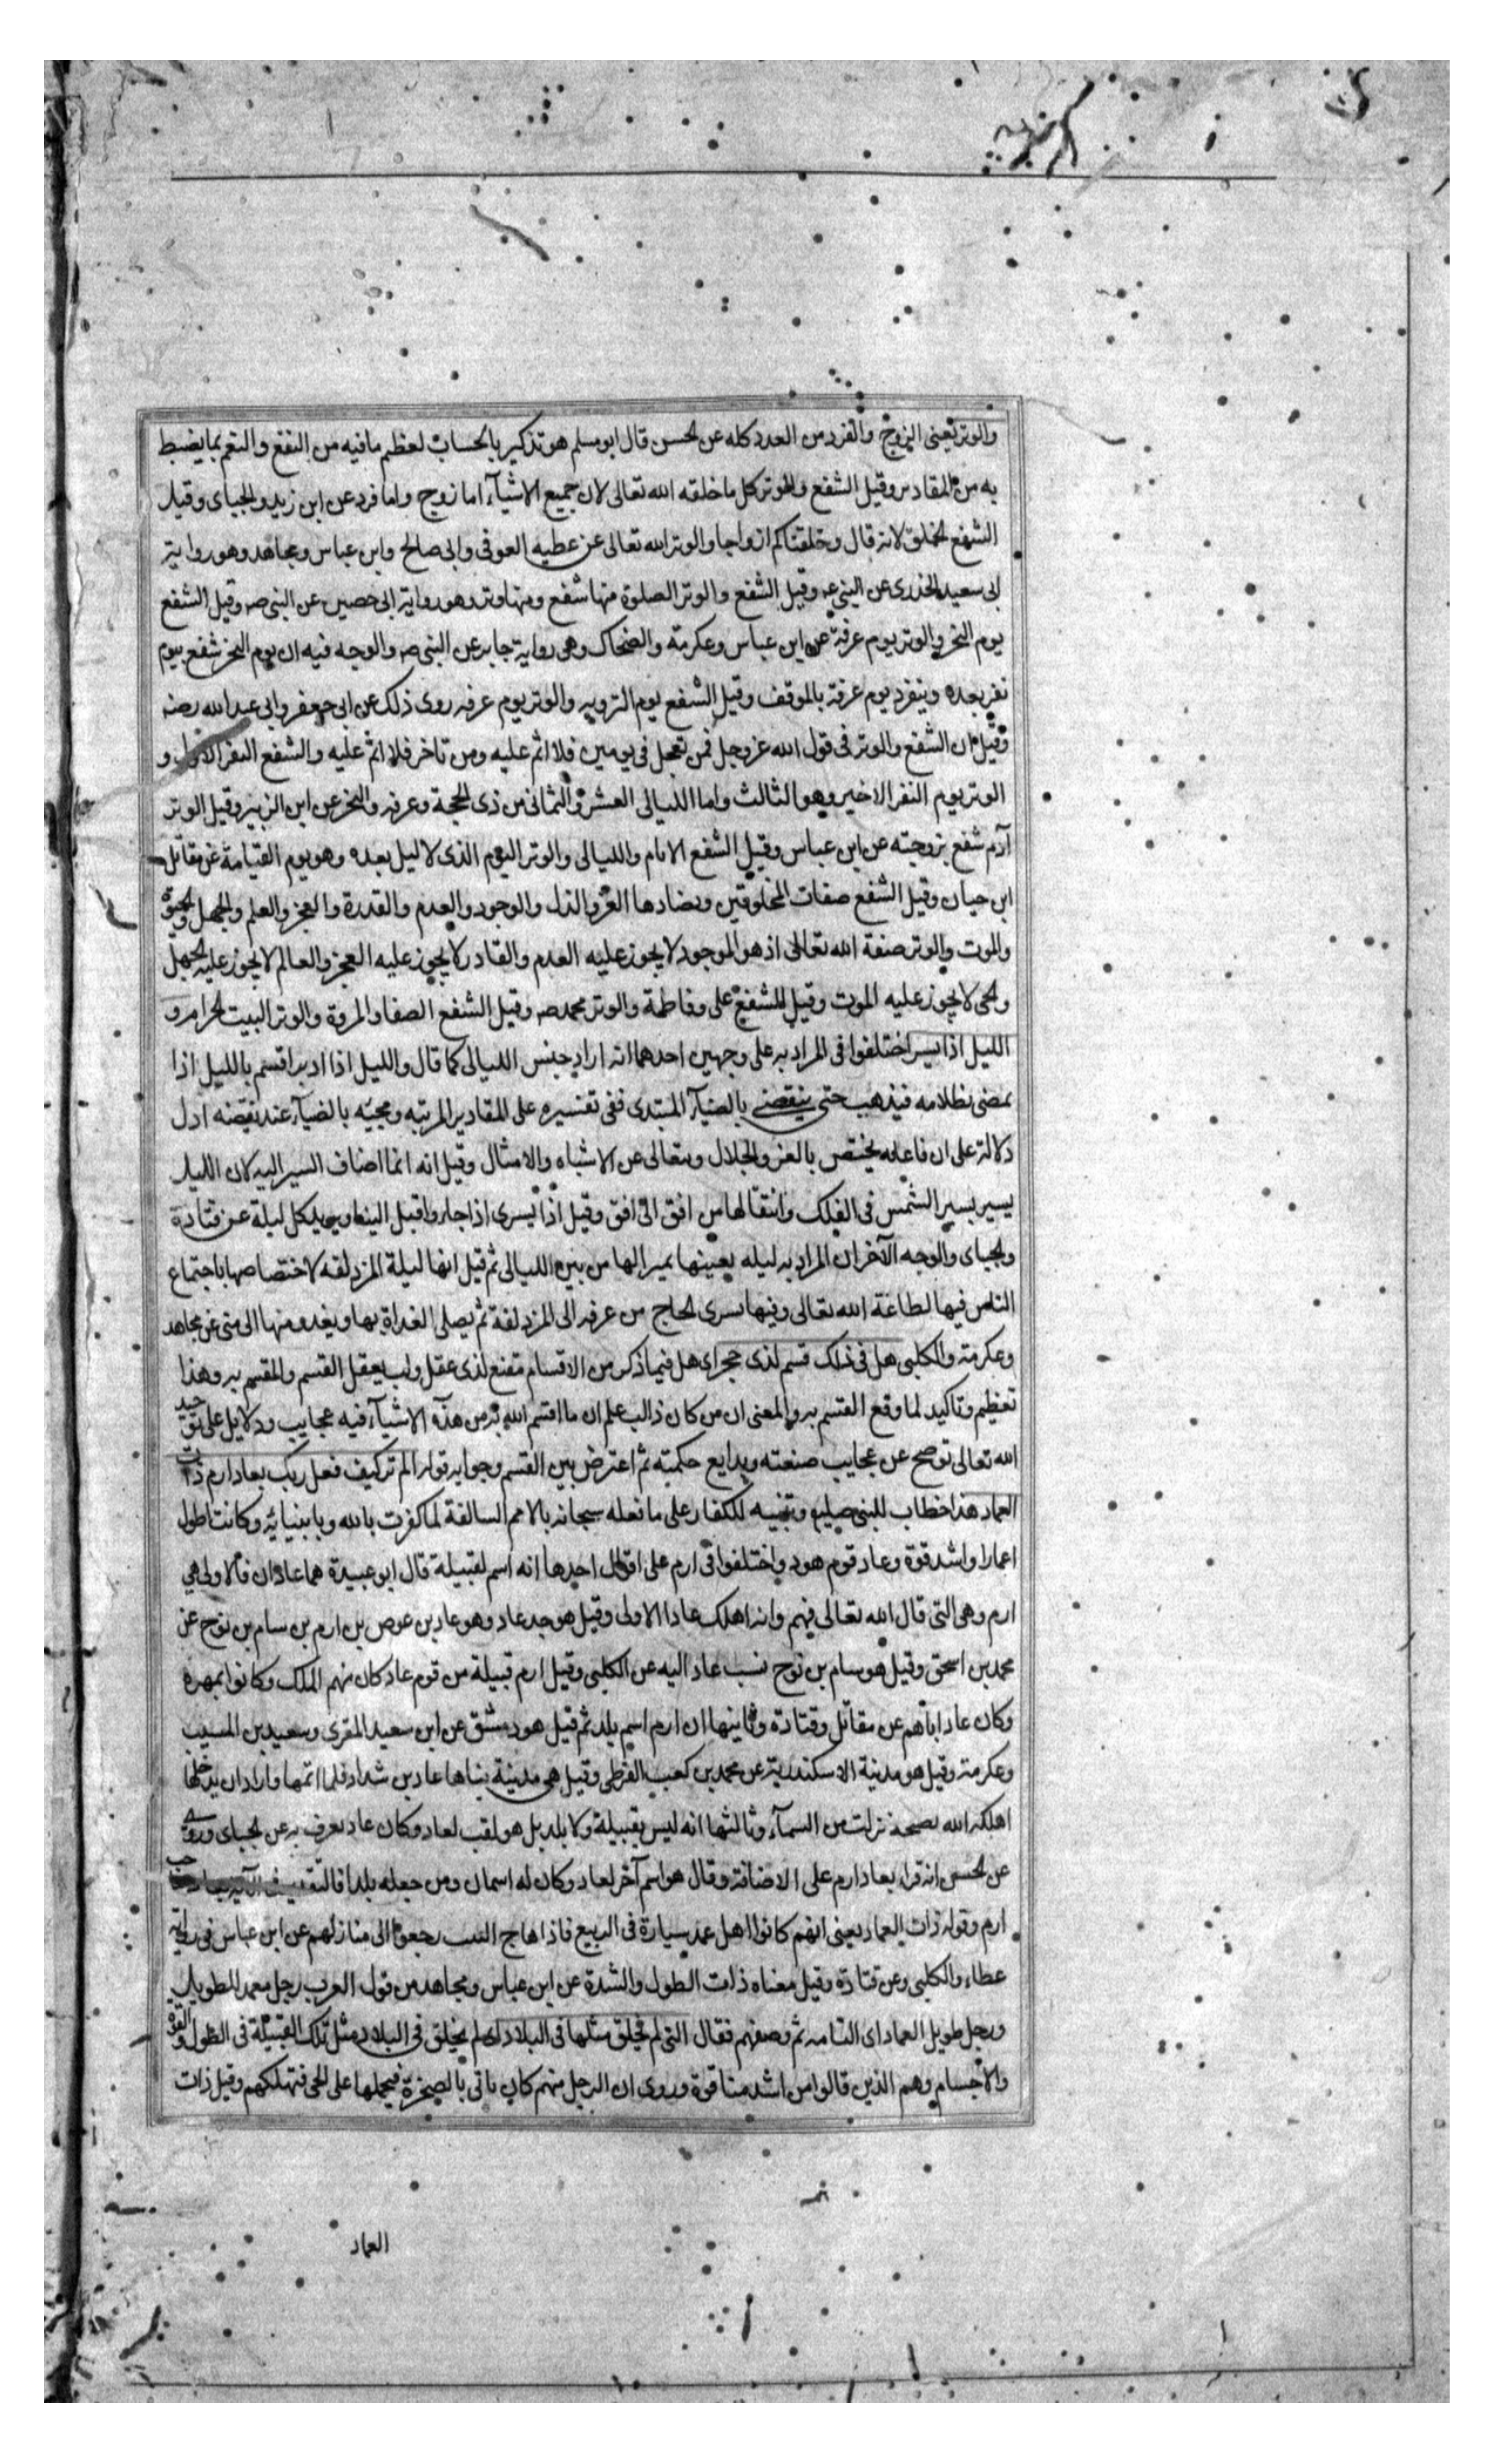 والوتر يعنى الزوج والفرد من العدد كله عن الحسن قال ابو مسلم هو تذكير بالحساب لعظم ما فيه من النفع والنعم بما يضبط
به من المقادير وقيل الشفع والوتر كل ما خلقه الله تعالى لان جميع الاشيآء اما زوج واما فرد عن ابن زيد والجباى وقيل
الشفع الخلق لانه قال وخلقناكم ازواجا والوتر الله تعالى عن عطيه العوفى وابى صالح وابن عباس ومجاهد وهو رواية
ابى سعيد الخدرى عن النبى ع وقيل الشفع والوتر الصلوة منها شفع ومنها وتر وهو رواية ابى حصين عن النبى ص وقيل الشفع
يوم النحر والوتر يوم عرفة عن ابن عباس وعكرمة والضحاك وهى رواية جابر عن النبى ص والوجه فيه ان يوم النحر شفع بيوم
نفر بعده وينفرد يوم عرفة بالموقف وقيل الشفع يوم الترويه والوتر يوم عرفه روى ذلك عن ابى جعفر وابى عبد الله رضه
وقيل ان الشفع والوتر فى قول الله عز وجل فمن تعجل فى يومين فلا اثم عليه ومن تاخر فلا اثم عليه والشفع النفر الاول و
الوتر يوم النفر الاخير وهو الثالث واما الليالى العشر والثمانى من ذى الحجة وعرفه والنحر عن ابن الزبير وقيل الوتر
آدم شفع بزوجته عن ابن عباس وقيل الشفع الايام والليالى والوتر اليوم الذى لا ليل بعده وهو يوم القيامة عن مقاتل
ابن حيان وقيل الشفع صفات المخلوقين وتضادها العز والذل والوجود والعدم والقدرة والعجز والعلم والجهل والحيوة
والموت والوتر صفة الله تعالى اذ هو الموجود لا يجوز عليه العدم والقادر لا يجوز عليه العجز والعالم لا يجوز عليه الجهل
والحى لا يجوز عليه الموت وقيل الشفع على وفاطمة والوتر محمد ص وقيل الشفع الصفا والمروة والوتر البيت الحرام و
الليل اذا يسر اختلفوا فى المراد به على وجهين احدهما انه اراد جنس الليالى كما قال والليل اذا ادبر اقسم بالليل اذا
يمضى بظلامه فيذهب حتى ينقضى بالضيآء المبتدى ففى تفسيره على المقادير المرتبه ومجيئه بالضيآء عند تقضيه ادل
دلالة على ان فاعله يختص بالعز والجلال ويتعالى عن الاشباه والامثال وقيل انه انما اضاف السير اليه لان الليل
يسير بسير الشمس فى الفلك وانتقالها من افق الى افق وقيل اذا يسرى اذا جاء واقبل الينا ويريد كل ليلة عن قتادة
والجباى والوجه الآخر ان المراد به ليله بعينها تميزا لها من بين الليالى ثم قيل انها ليلة المزدلفه لاختصاصها باجتماع
الناس فيها لطاعة الله تعالى وفيها يسرى الحاج من عرفه الى المزدلفة ثم يصلى الغداة بها ويغدو منها الى منى عن مجاهد
وعكرمة والكلبى هل فى ذلك قسم لذى حجر اى هل فيما ذكر من الاقسام مقنع لذى عقل ولب يعقل القسم والمقسم به وهذا
تعظيم وتاكيد لما وقع القسم به والمعنى ان من كان ذا لب علم ان ما اقسم الله به من هذه الاشيآء فيه عجايب ودلايل على توحيد
الله تعالى توضح عن عجايب صنعته وبدايع حكمته ثم اعترض بين القسم وجوابه قوله الم تر كيف فعل ربك بعاد ارم ذات
العماد هذا خطاب للنبى صلعم وتنبيه للكفار على ما فعله سبحانه بالامم السالفة لما كفرت بالله وبانبيائه وكانت اطول
اعمارا واشد قوة وعاد قوم هود واختلفوا فى ارم على اقوال احدها انه اسم لقبيلة قال ابو عبيدة هما عادان فالاولى هى
ارم وهى التى قال الله تعالى فيهم وانه اهلك عادا الاولى وقيل هو جد عاد وهو عاد بن عوص بن ارم بن سام بن نوح عن
محمد بن اسحق وقيل هو سام بن نوح نسب عاد اليه عن الكلبى وقيل ارم قبيلة من قوم عاد كان منهم الملك وكانوا بمهره
وكان عاد اباهم عن مقاتل وقتادة وثانيها ان ارم اسم بلد ثم قيل هو دمشق عن ابن سعيد المقرى وسعيد بن المسيب
وعكرمة وقيل هو مدينة الاسكندرية عن محمد بن كعب القرظى وقيل هى مدينة بناها عاد بن شداد فلما اتمها واراد ان يدخلها
اهلكه الله بصيحة نزلت من السمآء وثالثها انه ليس بقبيلة ولا بلد بل هو لقب لعاد وكان عاد يعرف به عن الجباى وروى
عن الحسن انه قراء بعاد ارم على الاضافة وقال هو اسم آخر لعاد وكان له اسمان ومن جعله بلدا فالتقدير فى الآية بعاد صاحب
ارم وقوله ذات العماد يعنى انهم كانوا اهل عمد سيارة فى الربيع فاذا هاج النبت رجعوا الى منازلهم عن ابن عباس فى رواية
عطاء والكلبى وعن قتادة وقيل معناه ذات الطول والشدة عن ابن عباس ومجاهد من قول العرب رجل معمد للطويل
ورجل طويل العماد اى القامه ثم وصفهم فقال التى لم يخلق مثلها فى البلاد اى لم يخلق فى البلاد مثل تلك القبيلة فى الطول والقوة
والاجسام وهم الذين قالوا من اشد منا قوة وروى ان الرجل منهم كان ياتى بالصخرة فيحملها على الحى فتهلكهم وقيل ذات
العماد